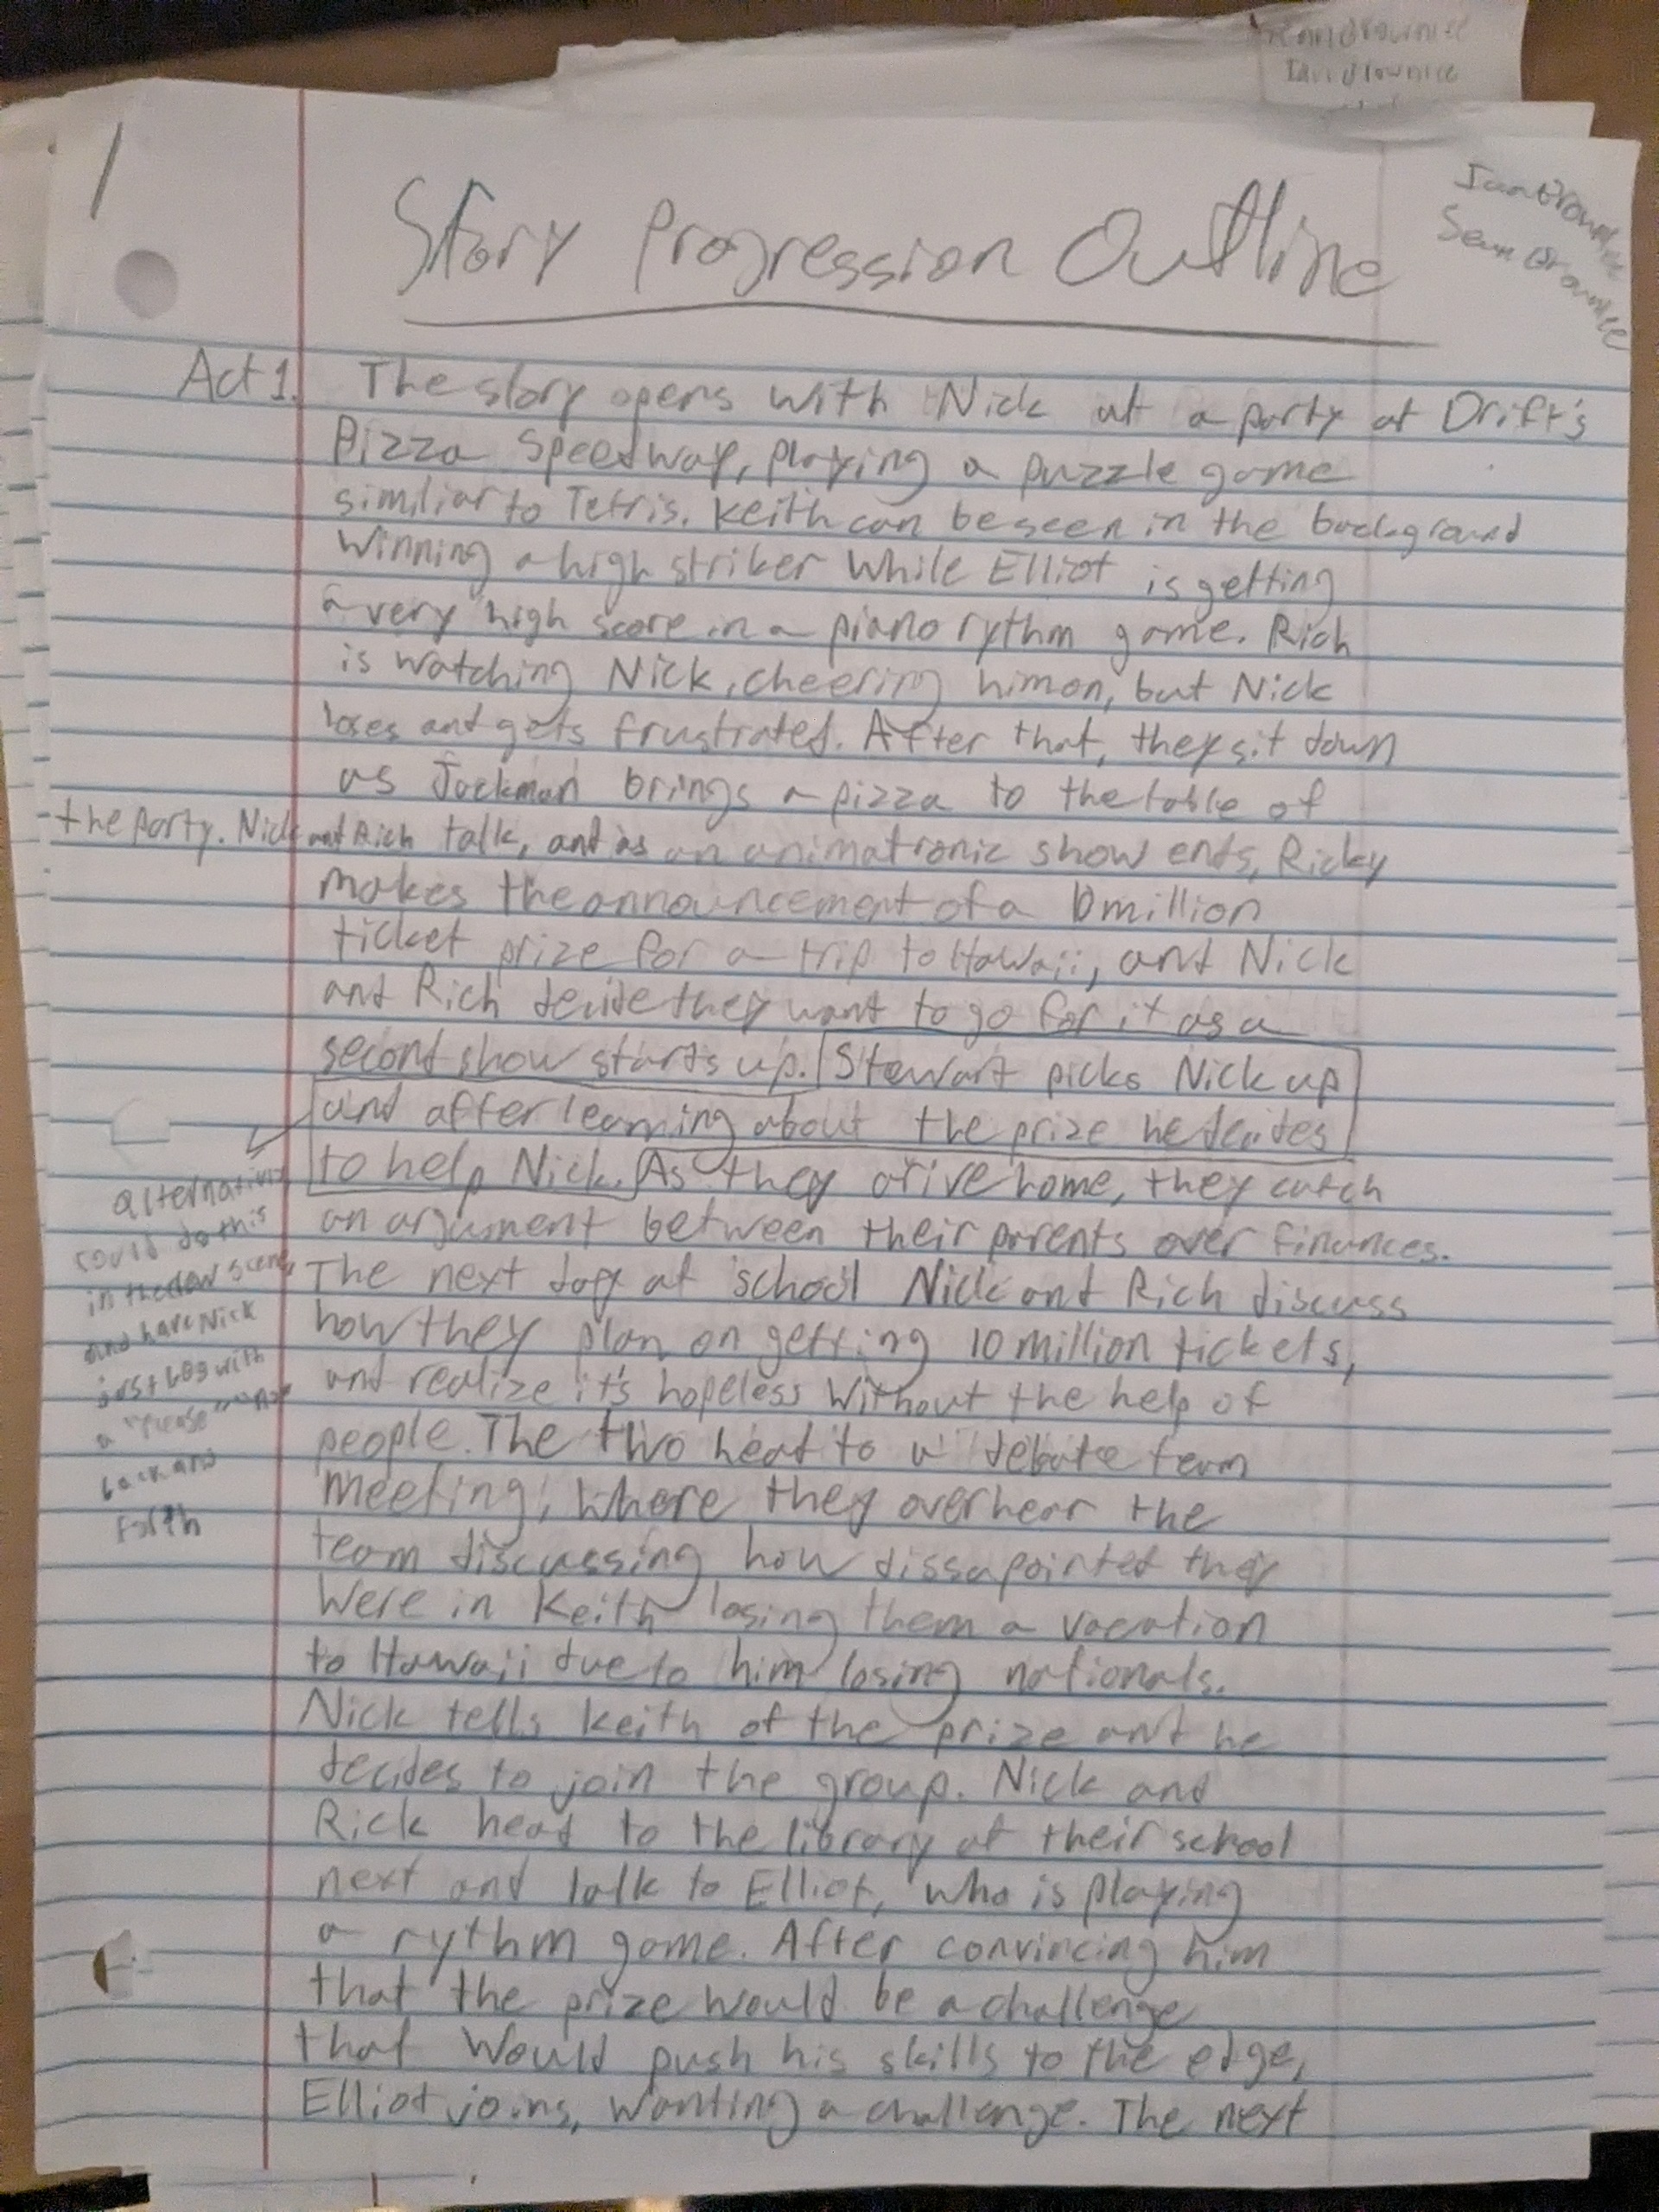 1
Story Progression Outline
Act 1. The story opens with Nick at a party at Drift's
Pizza Speedway, playing a puzzle game
similiar to Tetris. Keith can be seen in the background
winning a high striker while Elliot is getting
a very high score in a piano rythm game. Rich
is watching Nick, cheering him on, but Nick
loses and gets frustrated. After that, they sit down
as Jackman brings a pizza to the table of
the party. Nick and Rich talk, and as an animatronic show ends, Ricky
makes the announcement of a 10 million
ticket prize for a trip to Hawaii, and Nick
and Rich decide they want to go for it as a
second show starts up. Stewart picks Nick up
and after learning about the prize he decides
to help Nick. As they arive home, they catch
an argument between their parents over finances.
The next day at school Nick and Rich discuss
how they plan on getting 10 million tickets,
and realize it's hopeless without the help of
people. The two head to a debate team
meeting, where they overhear the
team discussing how dissapointed they
were in Keith losing them a vacation
to Hawaii due to him losing nationals.
Nick tells Keith of the prize and he
decides to join the group. Nick and
Rick head to the library at their school
next and talk to Elliot, who is playing
a rythm game. After convincing him
that the prize would be a challenge
that would push his skills to the edge,
Elliot joins, wanting a challenge. The next
could do this
in the
and have Nick
just beg with
a "please"
back and
forth